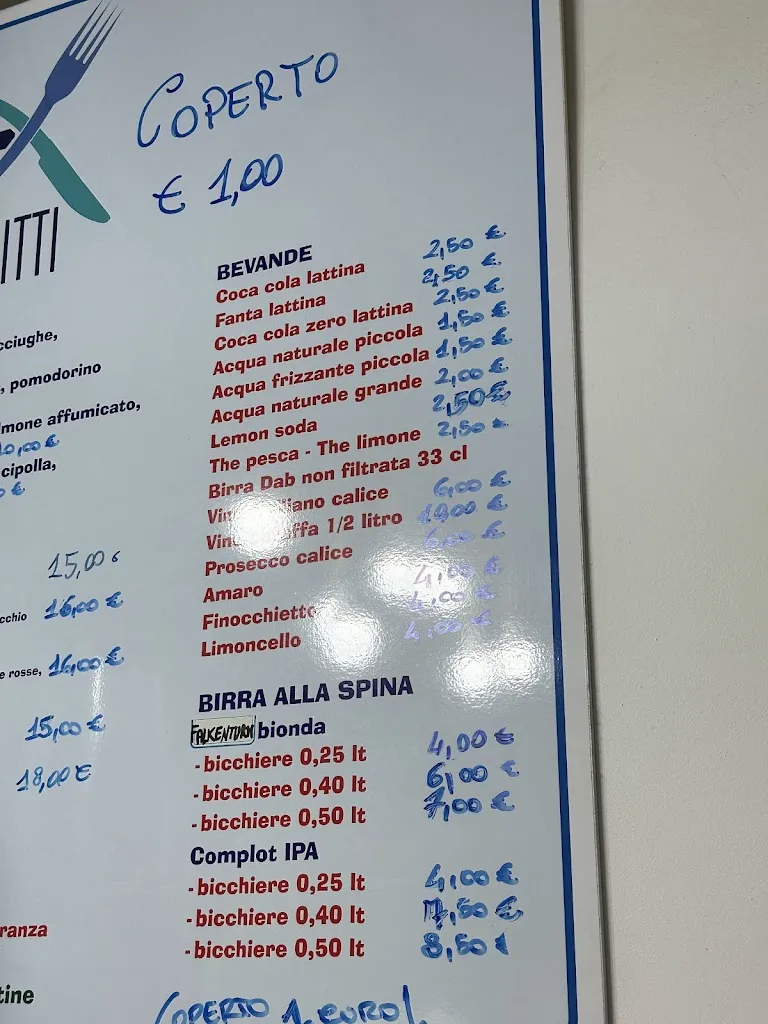 COPERTO
€ 1,00
ITTI
cciughe,
, pomodorino
mone affumicato,
10,00 €
cipolla,
€
15,00 €
cchio 16,00 €
e rosse, 16,00 €
15,00 €
18,00 €
ranza
tine
BEVANDE
Coca cola lattina 2,50 €
Fanta lattina 2,50 €
Coca cola zero lattina 2,50 €
Acqua naturale piccola 1,50 €
Acqua frizzante piccola 1,50 €
Acqua naturale grande 2,00 €
Lemon soda 2,50 €
The pesca - The limone 2,50 €
Birra Dab non filtrata 33 cl
calice 6,00 €
1/2 litro €
Prosecco calice 6,00 €
Amaro 4,00 €
Finocchietto 4,00 €
Limoncello 4,00 €
BIRRA ALLA SPINA
FALKENTURM bionda
-bicchiere 0,25 lt 4,00 €
-bicchiere 0,40 lt 6,00 €
-bicchiere 0,50 lt 7,00 €
Complot IPA
-bicchiere 0,25 lt 4,00 €
-bicchiere 0,40 lt 7,50 €
-bicchiere 0,50 lt 8,50 €
COPERTO 1 EURO!